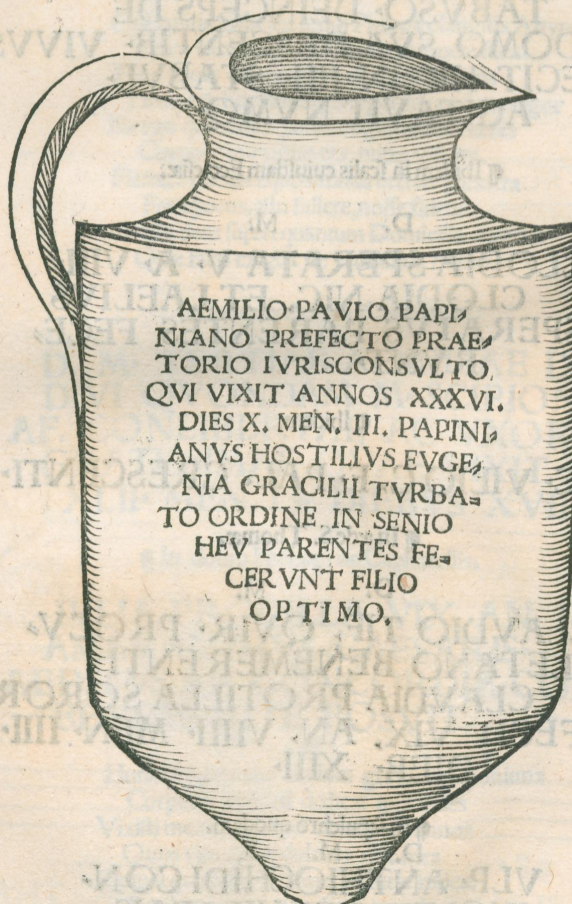 AEMILIO PAVLO PAPI⸗
NIANO PREFECTO PRAE⸗
TORIO IVRISCONSVLTO.
QVI VIXIT ANNOS XXXVI.
DIES X. MEN. III. PAPINI⸗
ANVS HOSTILIVS EVGE⸗
NIA GRACILII TVRBA⸗
TO ORDINE IN SENIO
HEV PARENTES FE⸗
CERVNT FILIO
OPTIMO.